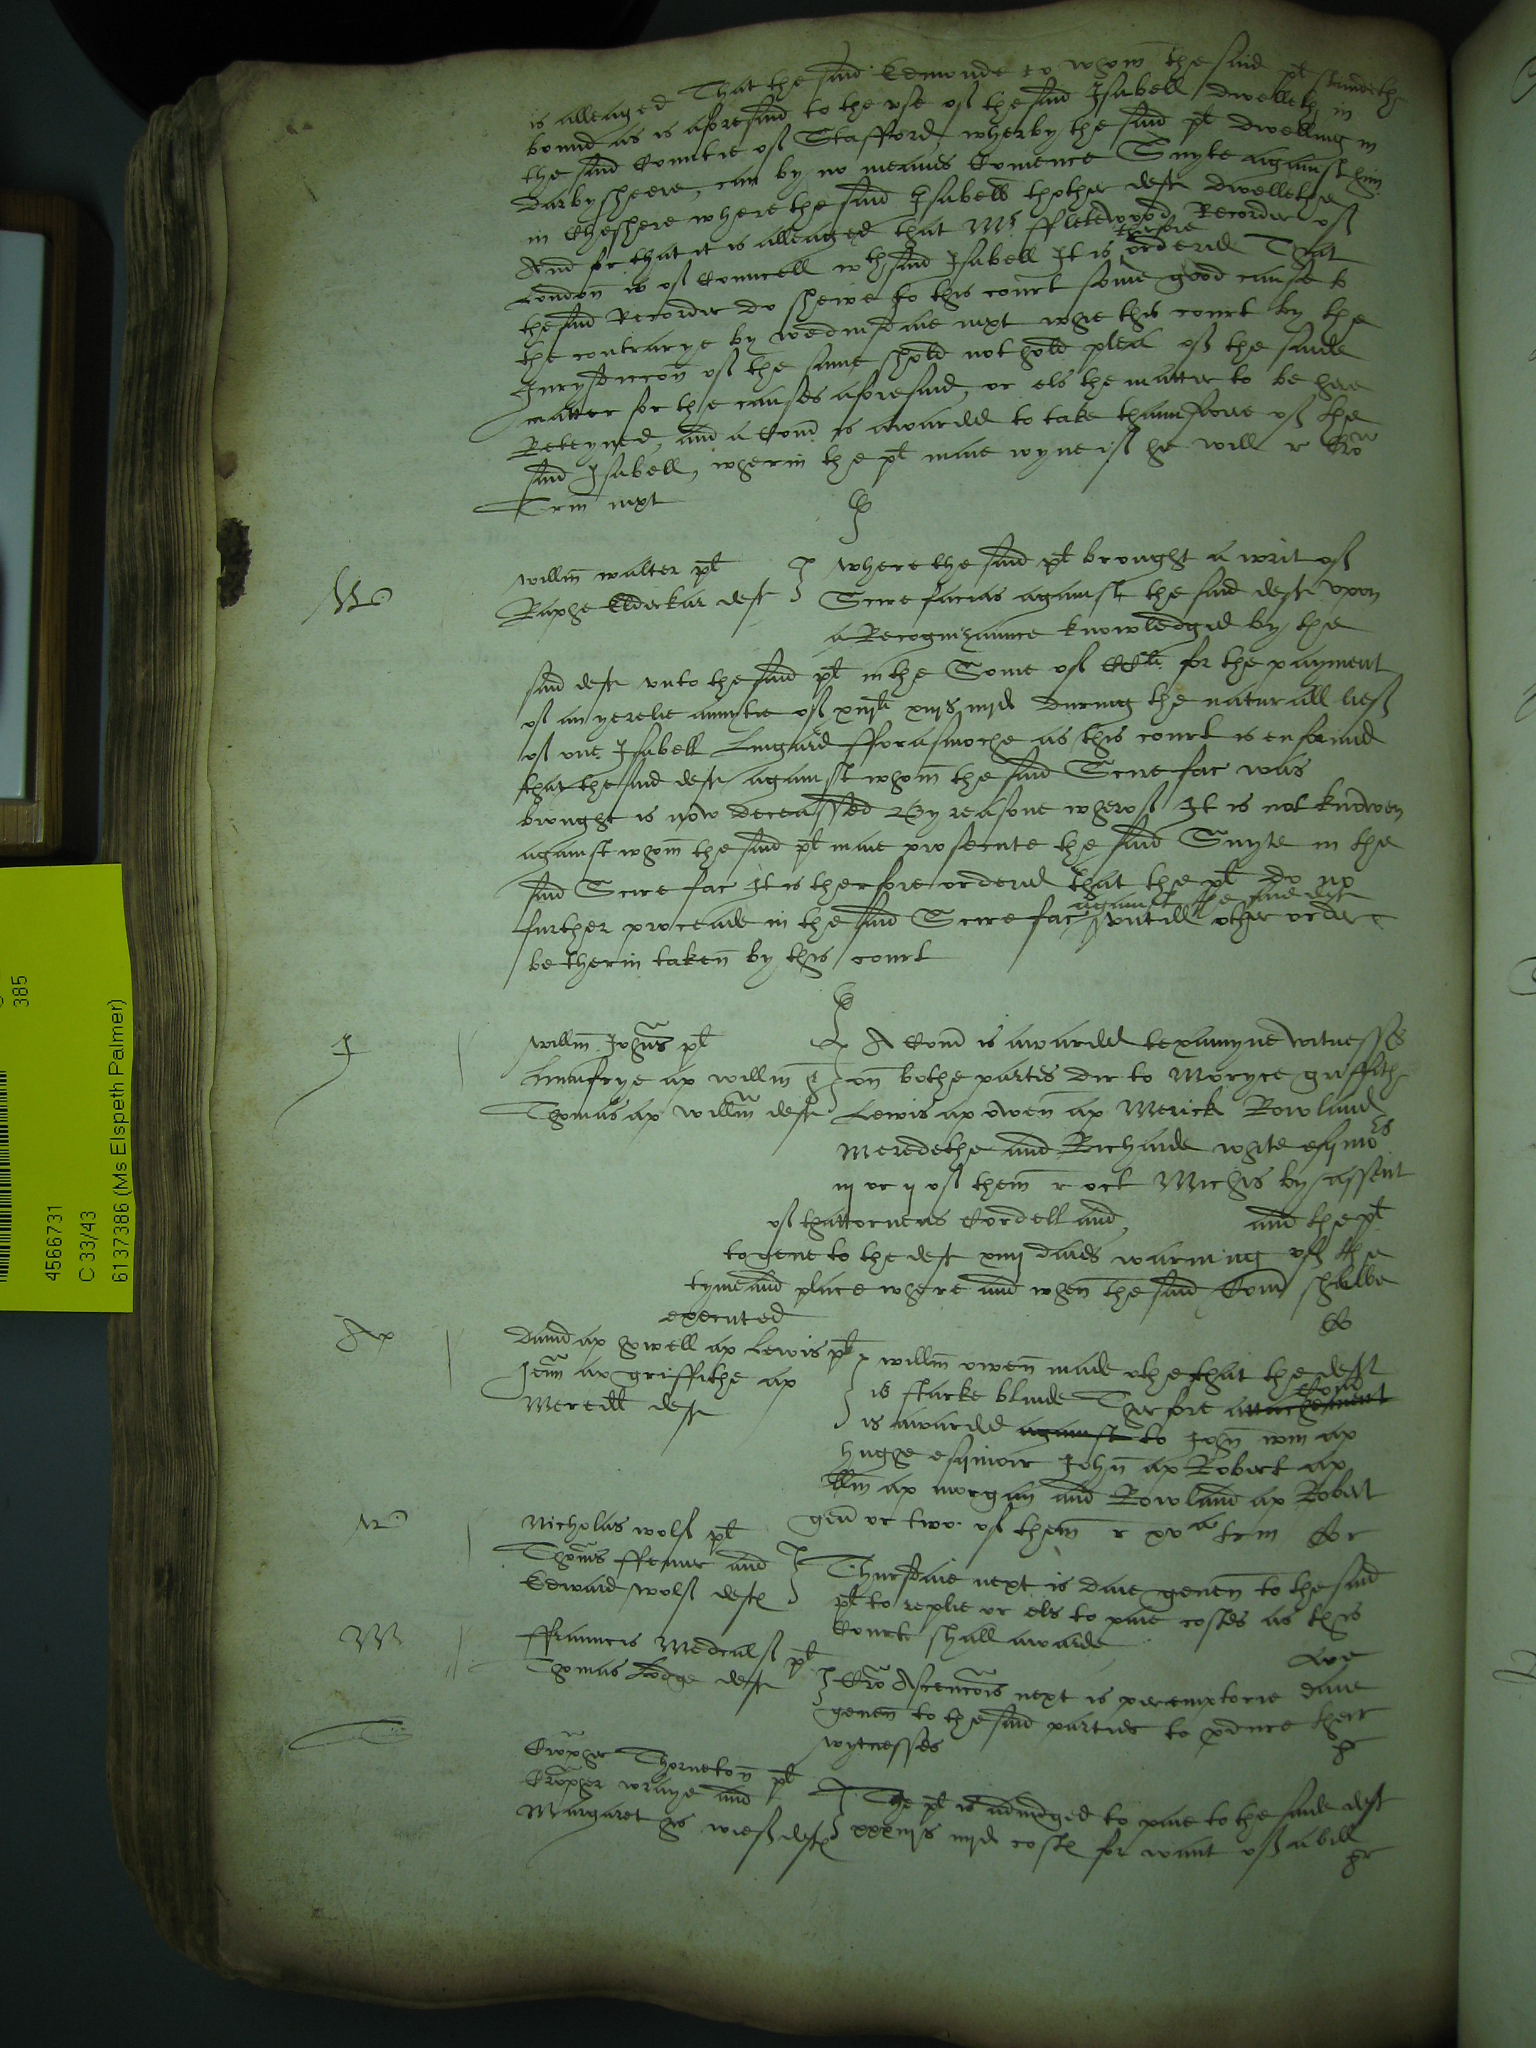 is alleaged That the said Edmonde to whom the said plt standeth
bound as is aforesaid to the use of the said Isabell dwelleth in
the said Countie of Stafford, wherby the said plt dwelling in
Darbysheere, can by no meanes Comence Suyte against him
in Cheshere where the said Isabell thother deft dwelleth
And for that it is alleaged that Mr ffletewood Recorder of
London is of Councell wth said Isabell It is therfore ordered That
the said Recorder do shewe to this court some good cause to
the contrarye by wednesdaie next whie this court by the
Jurysdiccon of the same shold not hold plea of the saide
matter for the causes aforesaid, or els the matter to be here
Reteyned, and a Comd is awarded to take thaunswere of the
said Isabell, wherin the plt maie ioyne if he will r
Trm next
W
willm walter plt
Raphe Elderkar deft
where the said plt brought a writ of
Scire facias against the said deft upon
a Recognizaunce knowledged by the
said deft unto the said plt in the Some of CCli for the payment
of an yerelie annytie of xiijli xiijs iiijd during the naturall lief
of one Isabell Lingard fforasmoche as this court is enformed
that the said deft against whom the said Scire fac was
brought is now deceassed By reasone wherof It is not knowen
against whom the said plt maie prosecute the said Suyte in the
said Scire fac It is therfore ordered that the plt do no
further proceade in the said Scire fac against the said deft untill other order
be therin taken by this court
J
willm Johns plt
Thomas ap willm deft
A Comd is awarded texamyne witnesses
on bothe partes dir to Moryce griffith
Lewis ap owen ap Merick Rowland
Meredethe and Richarde white esquiors
iij or ij of them r oct Michis by assent
of thattorneis Cordell and and the plt
to geve to the deft xiiij daies warning of the
tyme and place where and when the said Comd shalbe
executed
Ap
David ap howell ap Lewis plt
Jevn ap griffithe ap
Meredd deft
willm owen made othe that the deft
is starke blinde Therfore attachement Comd
is awarded against to John wm ap
hughe esquior John ap Robert ap
llm ap morgan and Rowland ap Robert
gen or two of them r xva trm
W
Nicholas wolf plt
Thomas ffenner and
Edward wolf deftes
Thursdaie next is daie geven to the said
plt to replie or els to paie costes as this
Court shall awarde
M
ffrauncis Medcalf plt
Thomas Lodge deft
Cro Ascencois next is peremptorie daie
geven to the said parties to produce their
wytnesses
T
Cristopher Thorneton plt
Cristopher wraye and
Margaret his wief deftes
The plt is adiudged to paie to the saide deft
xxxiijs iiijd costes for want of a bill
385
4566731
C 33/43
6137386 (Ms Elspeth Palmer)